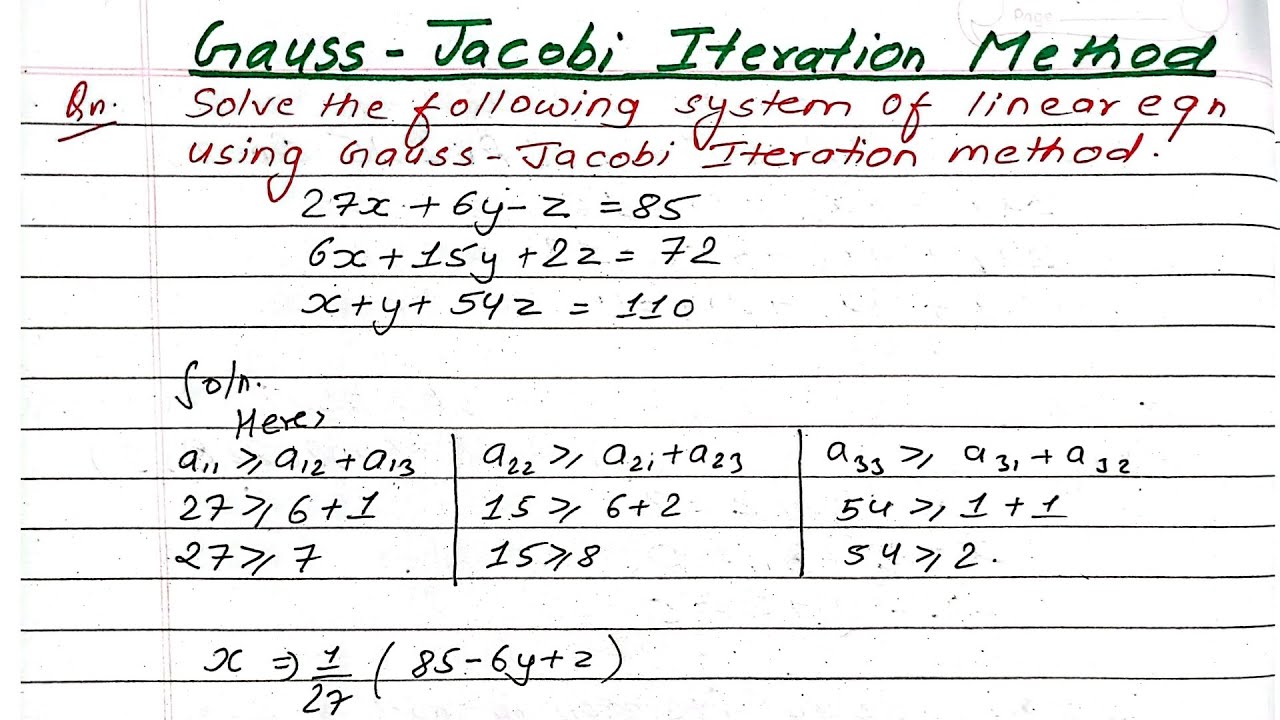 Page
Gauss - Jacobi Iteration Method
Qn. Solve the following system of linear eqn
using Gauss - Jacobi Iteration method.
27x + 6y - z = 85
6x + 15y + 2z = 72
x + y + 54z = 110
Soln.
Here,
a₁₁ ⩾ a₁₂ + a₁₃ | a₂₂ ⩾ a₂₁ + a₂₃ | a₃₃ ⩾ a₃₁ + a₃₂
27 ⩾ 6 + 1 | 15 ⩾ 6 + 2 | 54 ⩾ 1 + 1
27 ⩾ 7 | 15 ⩾ 8 | 54 ⩾ 2.
x ⇒ 1/27 ( 85 - 6y + z )